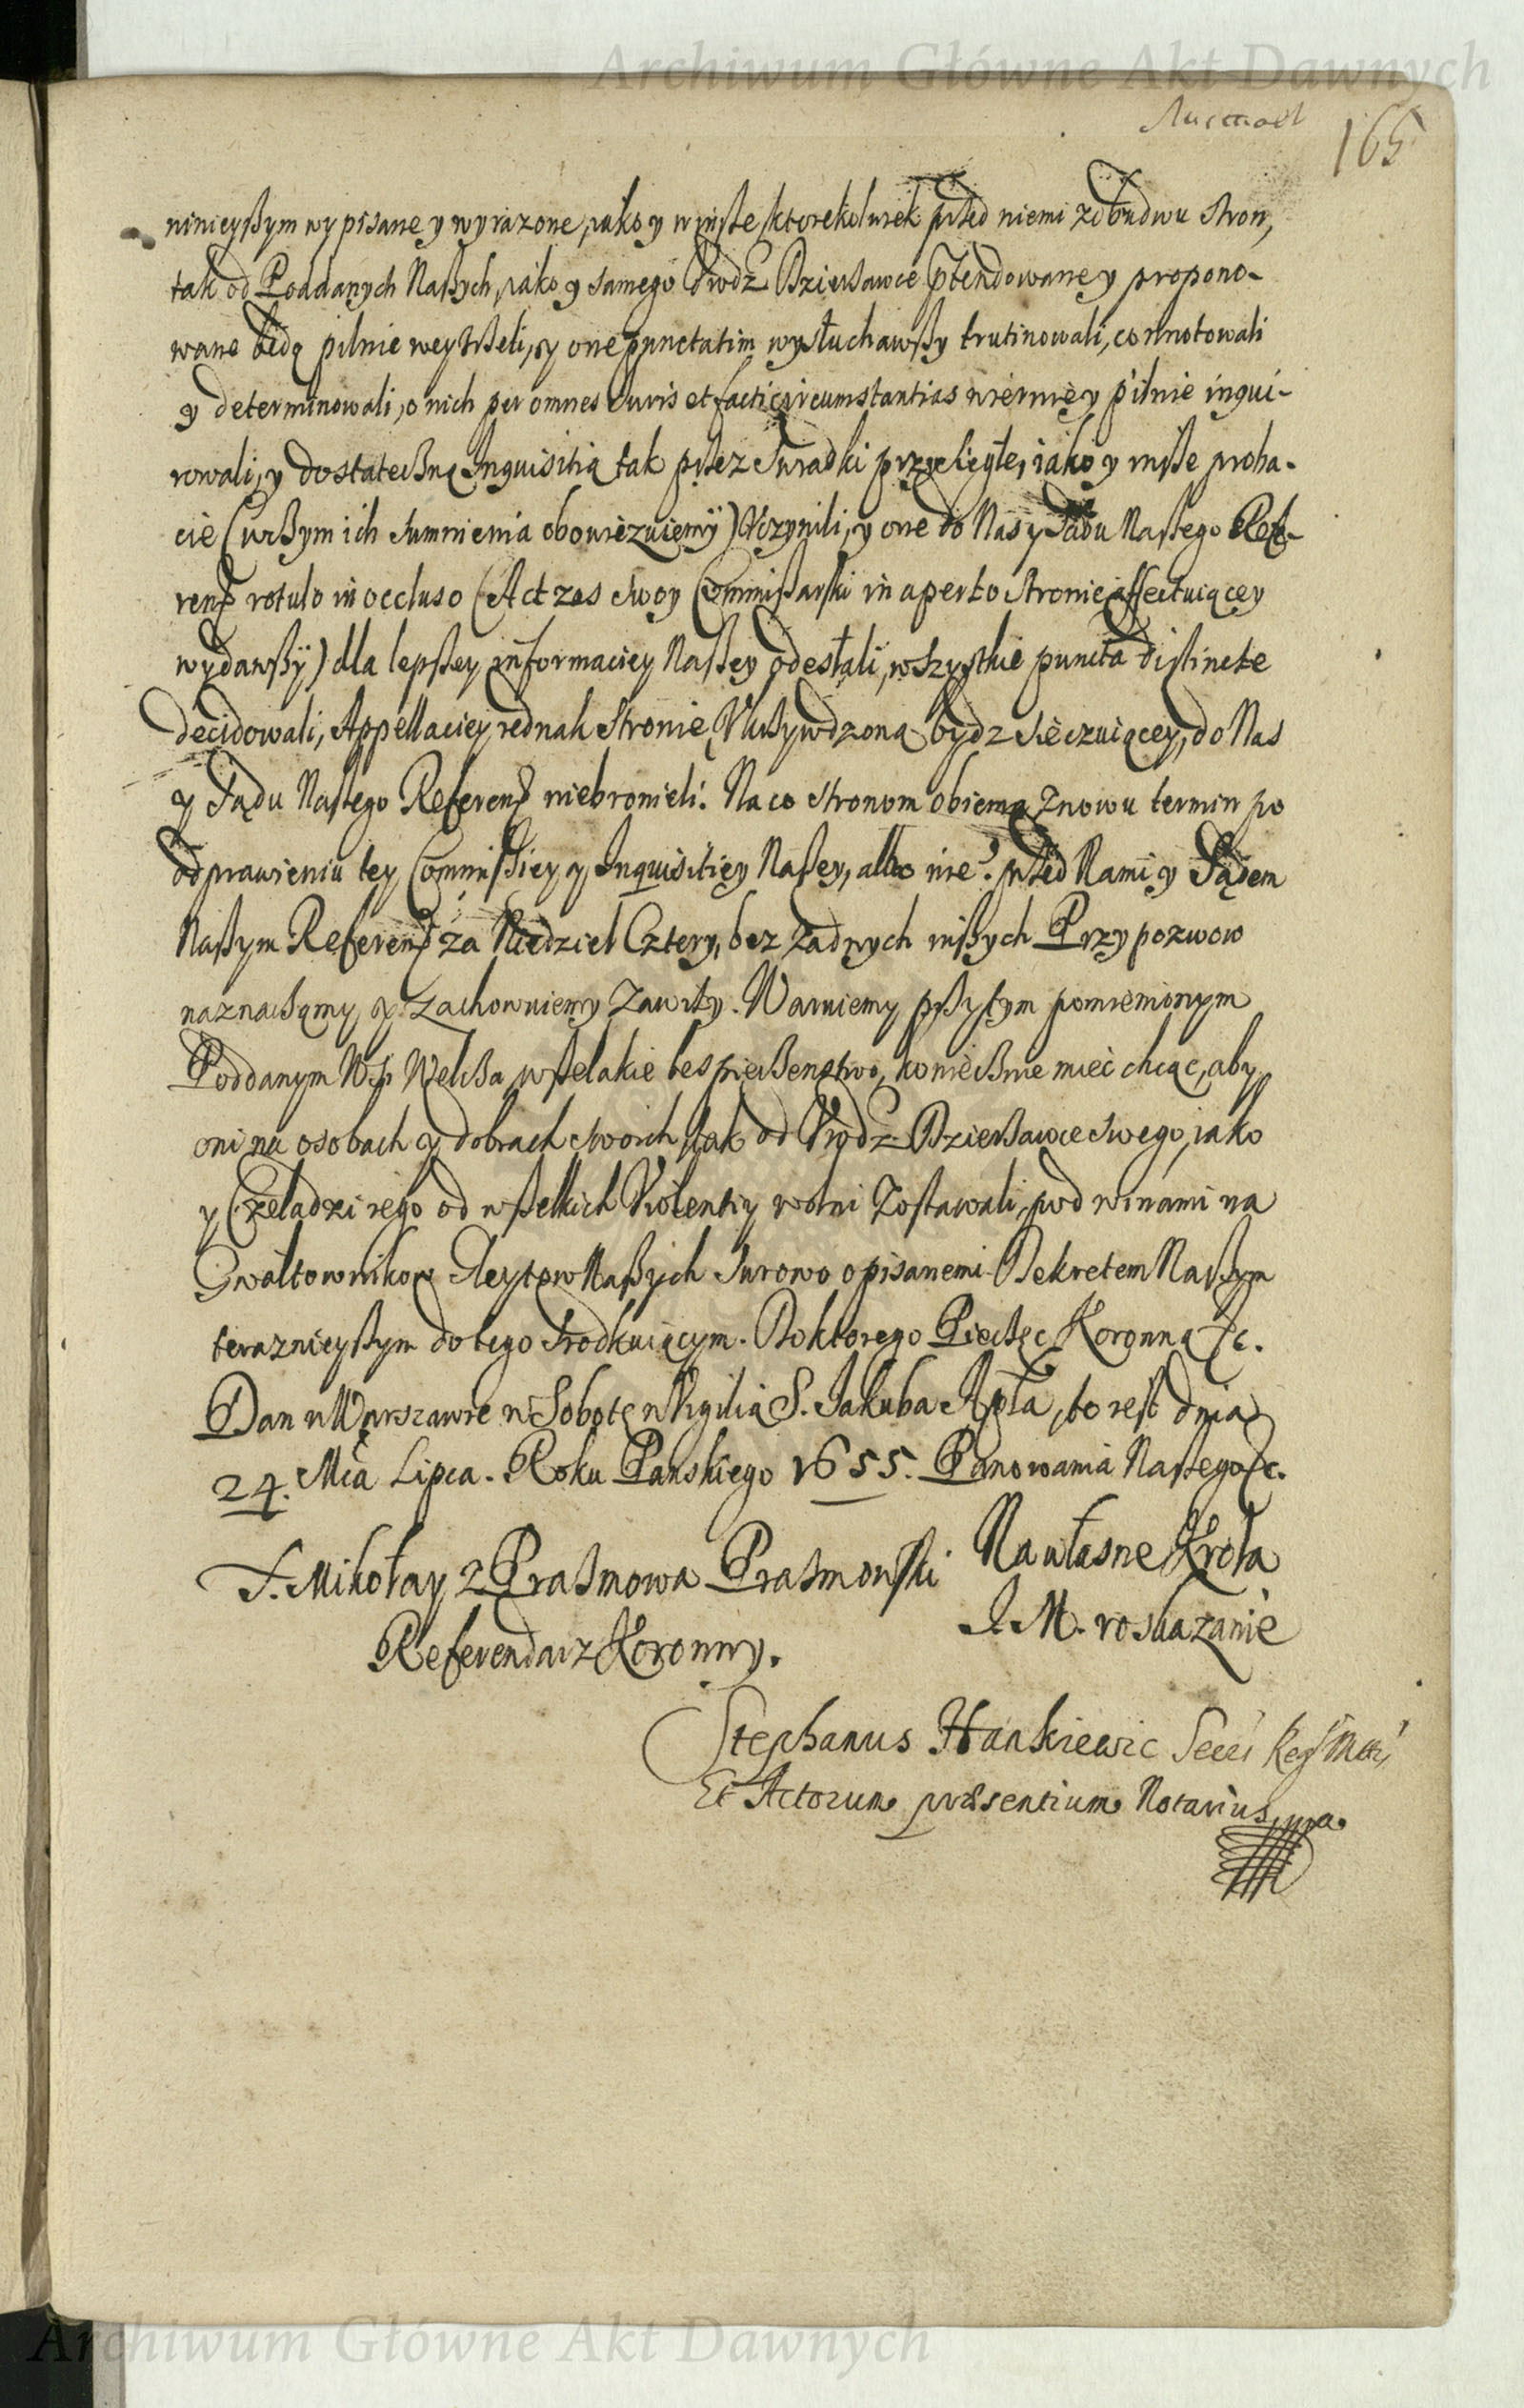 Archiwum Główne Akt Dawnych
165
ninieyßym wypisane y wyrażone, iako y insze ktorekolwiek przed niemi z obudwu stron,
tak od Poddanych Naßych, iako y samego Urodz. Dzierżawce ptendowane y propono-
wane będą pilnie weyrzeli, y one punctatim wysłuchawßy trutinowali, connotowali
y determinowali, o nich per omnes Iuris et facti circumstantias wiernie y pilnie inqui-
rowali, y dostateczną Inquisitią tak przez Swiadki przyległe, iako y insze proba-
cie (w czym ich sumnienia obowiezuiemÿ) Uczynili, y one do Nas y Sądu Naszego Refe-
ren rotulo in occluso (Act zas swoy Commißarski in aperto stronie affectuiącey
wydawßÿ) dla lepßey informaciey Naßey odesłali, wszystkie puncta distincte
decidowali, Appellaciey iednak stronie, Ukrzywdzoną bydz sie czuiącey, do Nas
y Sądu Naszego Referen niebronieli. Na co stronom obiema znowu termin po
odprawieniu tey Commißiey y Inquisitiey Naßey, albo nie? przed Nami y Sądem
Naßym Referen za Niedziel Cztery, bez żadnych inßych Przypozwow
naznaczamy y zachowuiemy Zawity. Waruiemy przytym pomienionym
Poddanym Wsi Welcza wszelakie bespieczenstwo, koniecznie mieć chcąc, aby
oni na osobach y dobrach swoich, tak od Urodz. Dzierżawce swego, iako
y Czeladzi iego od wszelkich Violentiy wolni zostawali, pod winami na
Gwałtownikow Gleytow Naßych surowo opisanemi Dekretem Naßym
teraznieyßym do tego srodkuiącym. Do ktorego Pieczęć Koronna &c.
Dan w Warszawie w Sobotę w Vigilią S. Iakuba Apła, to iest dnia
24. Mca Lipca. Roku Pańskiego 1655. Panowania Naszego &c.
X. Mikołay z Prażmowa Prażmowski
Referendarz Koronny.
Na własne Krola
I. M. roskazanie
Stephanus Hankiewic Secrs Reg Mttis
Et Actorum præsentium Notarius, mp.
Archiwum Główne Akt Dawnych